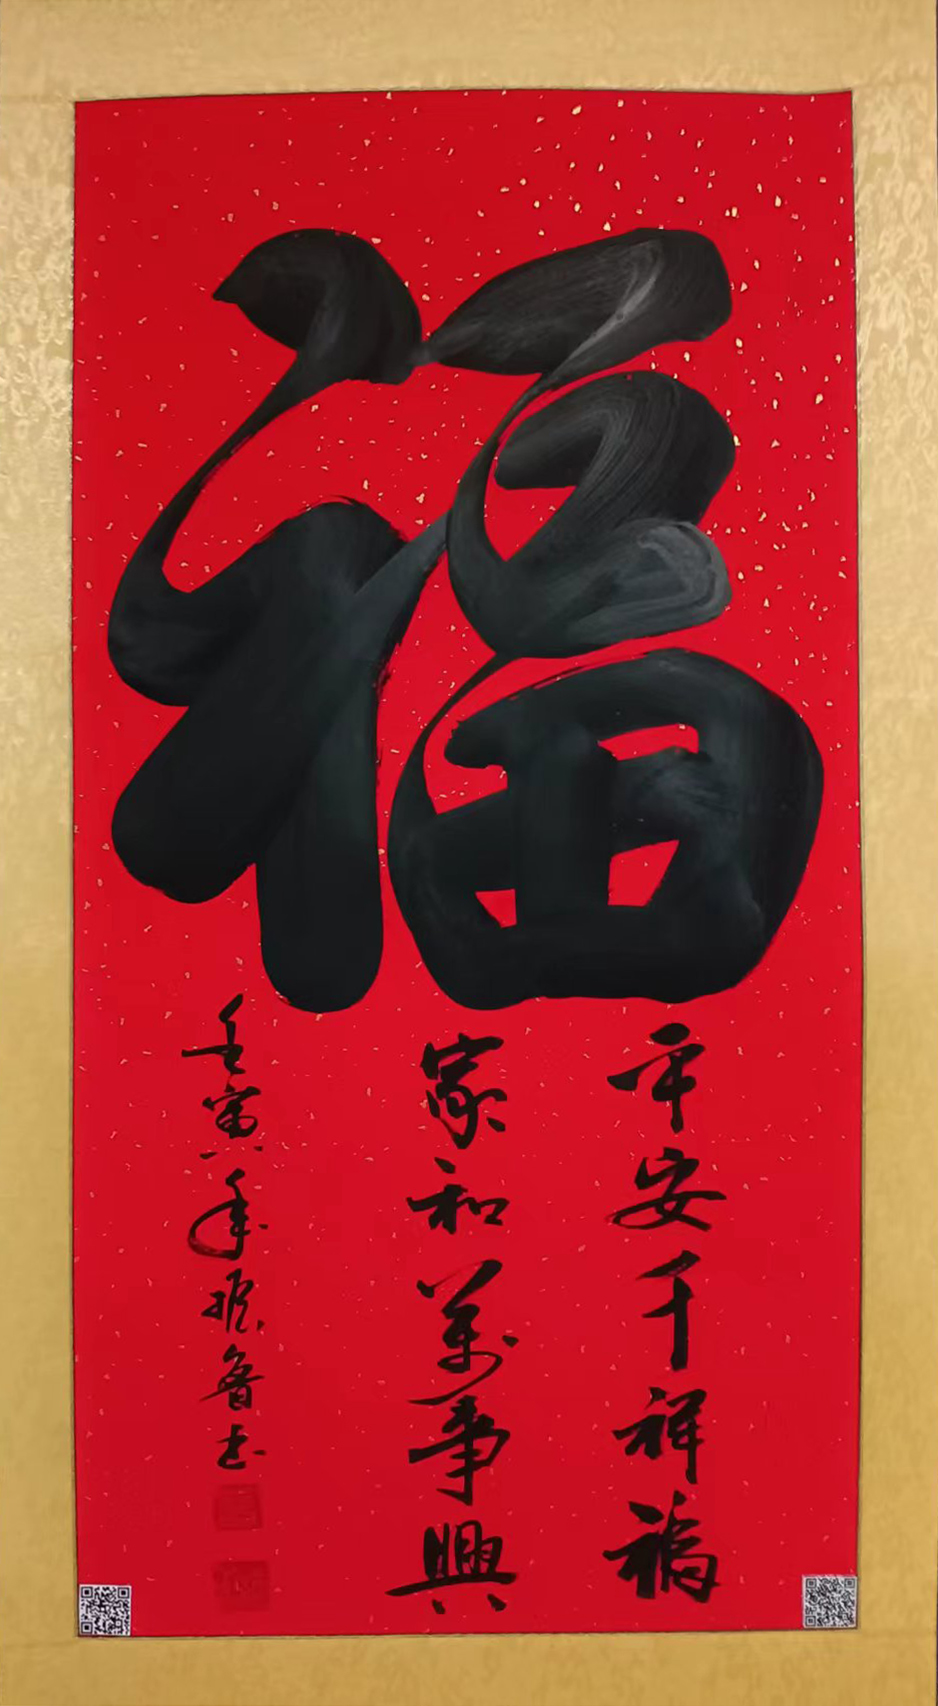 福
平安千祥福
家和萬事興
壬寅年振魯书